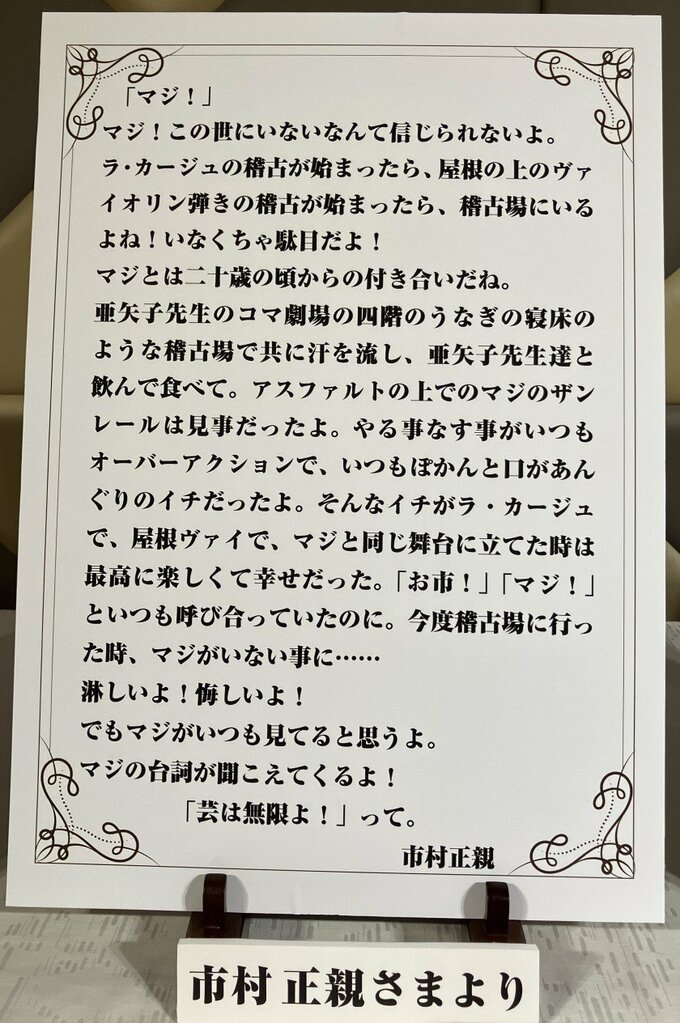 「マジ！」
マジ！この世にいないなんて信じられないよ。
ラ・カージュの稽古が始まったら、屋根の上のヴァ
イオリン弾きの稽古が始まったら、稽古場にいる
よね！いなくちゃ駄目だよ！
マジとは二十歳の頃からの付き合いだね。
亜矢子先生のコマ劇場の四階のうなぎの寝床の
ような稽古場で共に汗を流し、亜矢子先生達と
飲んで食べて。アスファルトの上でのマジのザン
レールは見事だったよ。やる事なす事がいつも
オーバーアクションで、いつもぽかんと口があん
ぐりのイチだったよ。そんなイチがラ・カージュ
で、屋根ヴァイで、マジと同じ舞台に立てた時は
最高に楽しくて幸せだった。「お市！」「マジ！」
といつも呼び合っていたのに。今度稽古場に行っ
た時、マジがいない事に……
淋しいよ！悔しいよ！
でもマジがいつも見てると思うよ。
マジの台詞が聞こえてくるよ！
「芸は無限よ！」って。
市村正親
市村 正親さまより